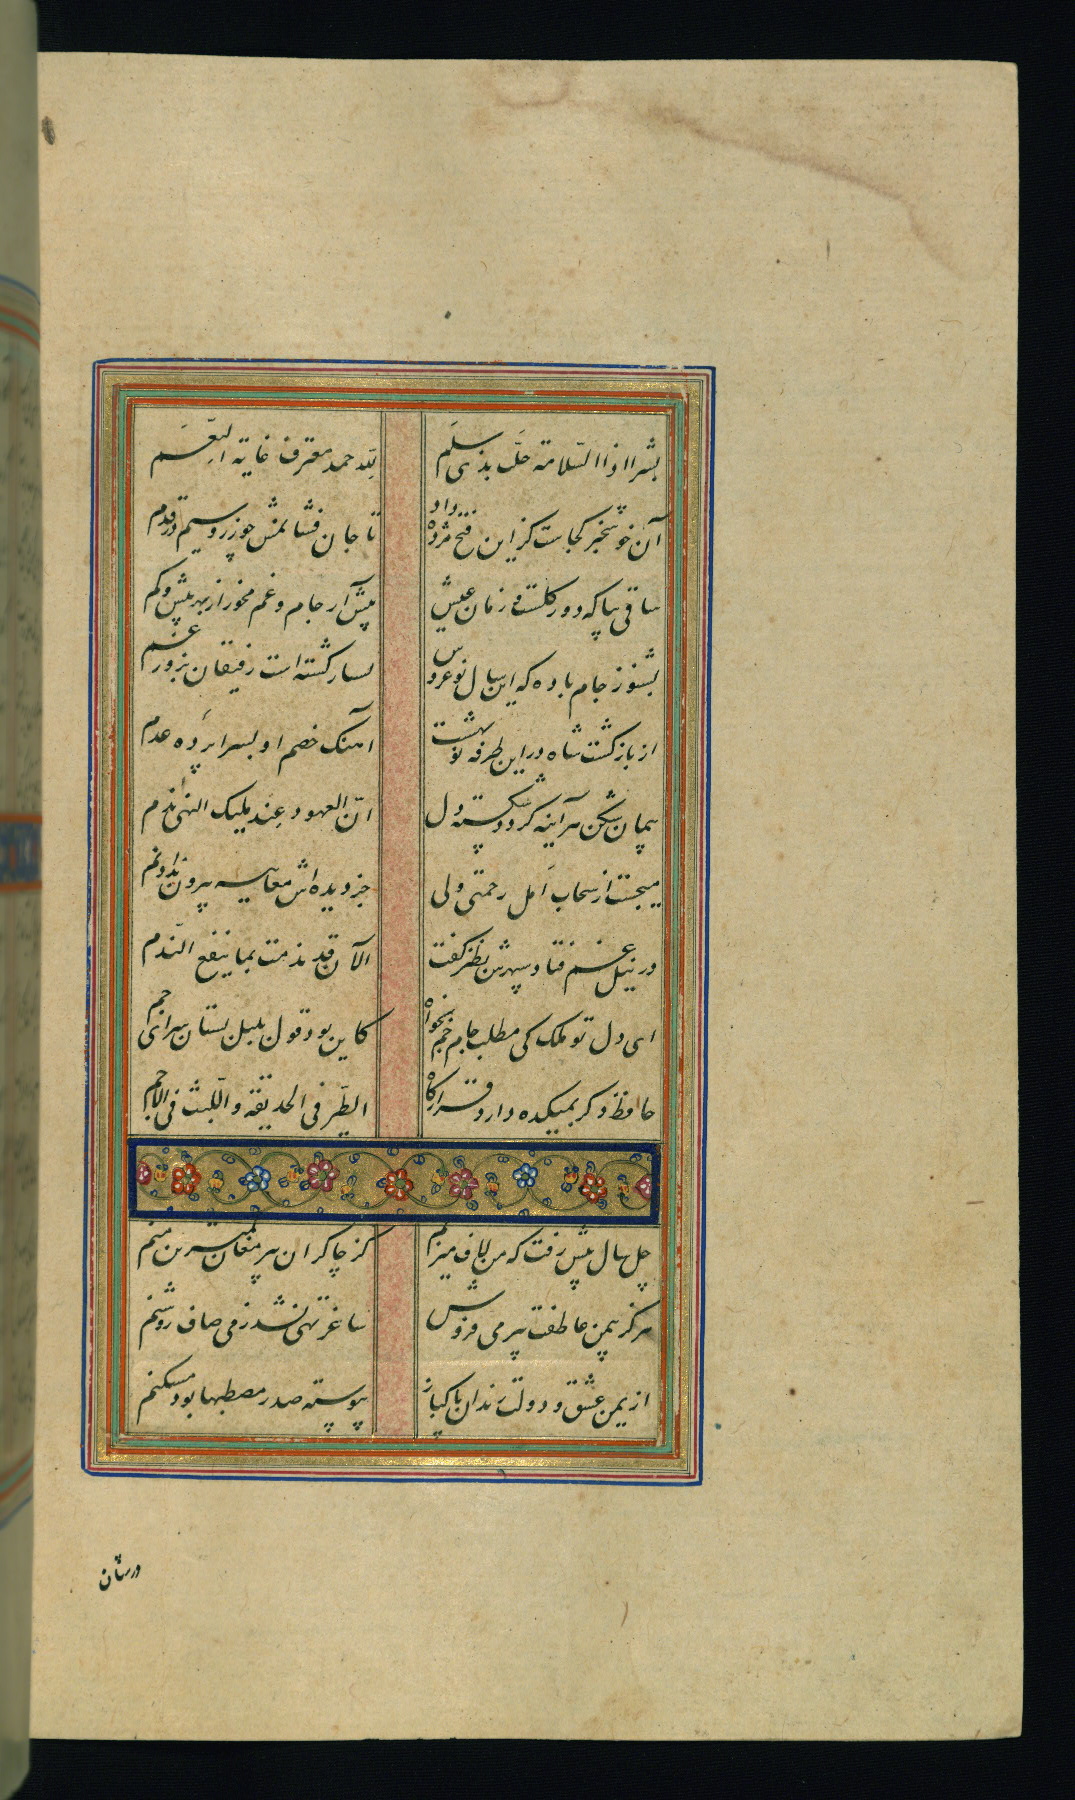 بشرا اذا السّلامة حلّت بذی سلم لله حمد معترف غایة النّعم
آن خوشخبر کجاست کزین فتح مژده داد تا جان فشانمش چو زر و سیم در قدم
ساقی بیا که دور گلست و زمان عیش پیش آر جام و غم مخور از بهر بیش و کم
بشنو ز جام باده که این سال نوعروس بسیار کشته است رفیقان بزور غم
از بازگشت شاه درین طرفه نوبهشت آهنگ خصم او بسراپرده عدم
پیمان شکن هرآینه گردد شکسته دل انّ العهود عند ملیک النهی ذمم
میجست از سحاب امل رحمتی ولی جز دیده‌اش معاینه بیرون نداد نم
در نیل غم فتاد سپهرش بطنز گفت الآن قد ندمت بما ینفع النّدم
ای دل تو ملک کی مطلب جام جم بخواه کاین بود قول بلبل بستان سرای جم
حافظ دگر بمیکده دارد قرارگاه الطّیر فی الحدیقة و اللّیث فی الاجم
چل سال پیش رفت که من لاف میزنم کز چاکران پیر مغان کمترین منم
هرگز بیمن عاطفت پیر می فروش ساغر تهی نشد ز می صاف روشنم
از یمن عشق و دولت رندان پاکباز پیوسته صدر مصطبها بود مسکنم
در شان